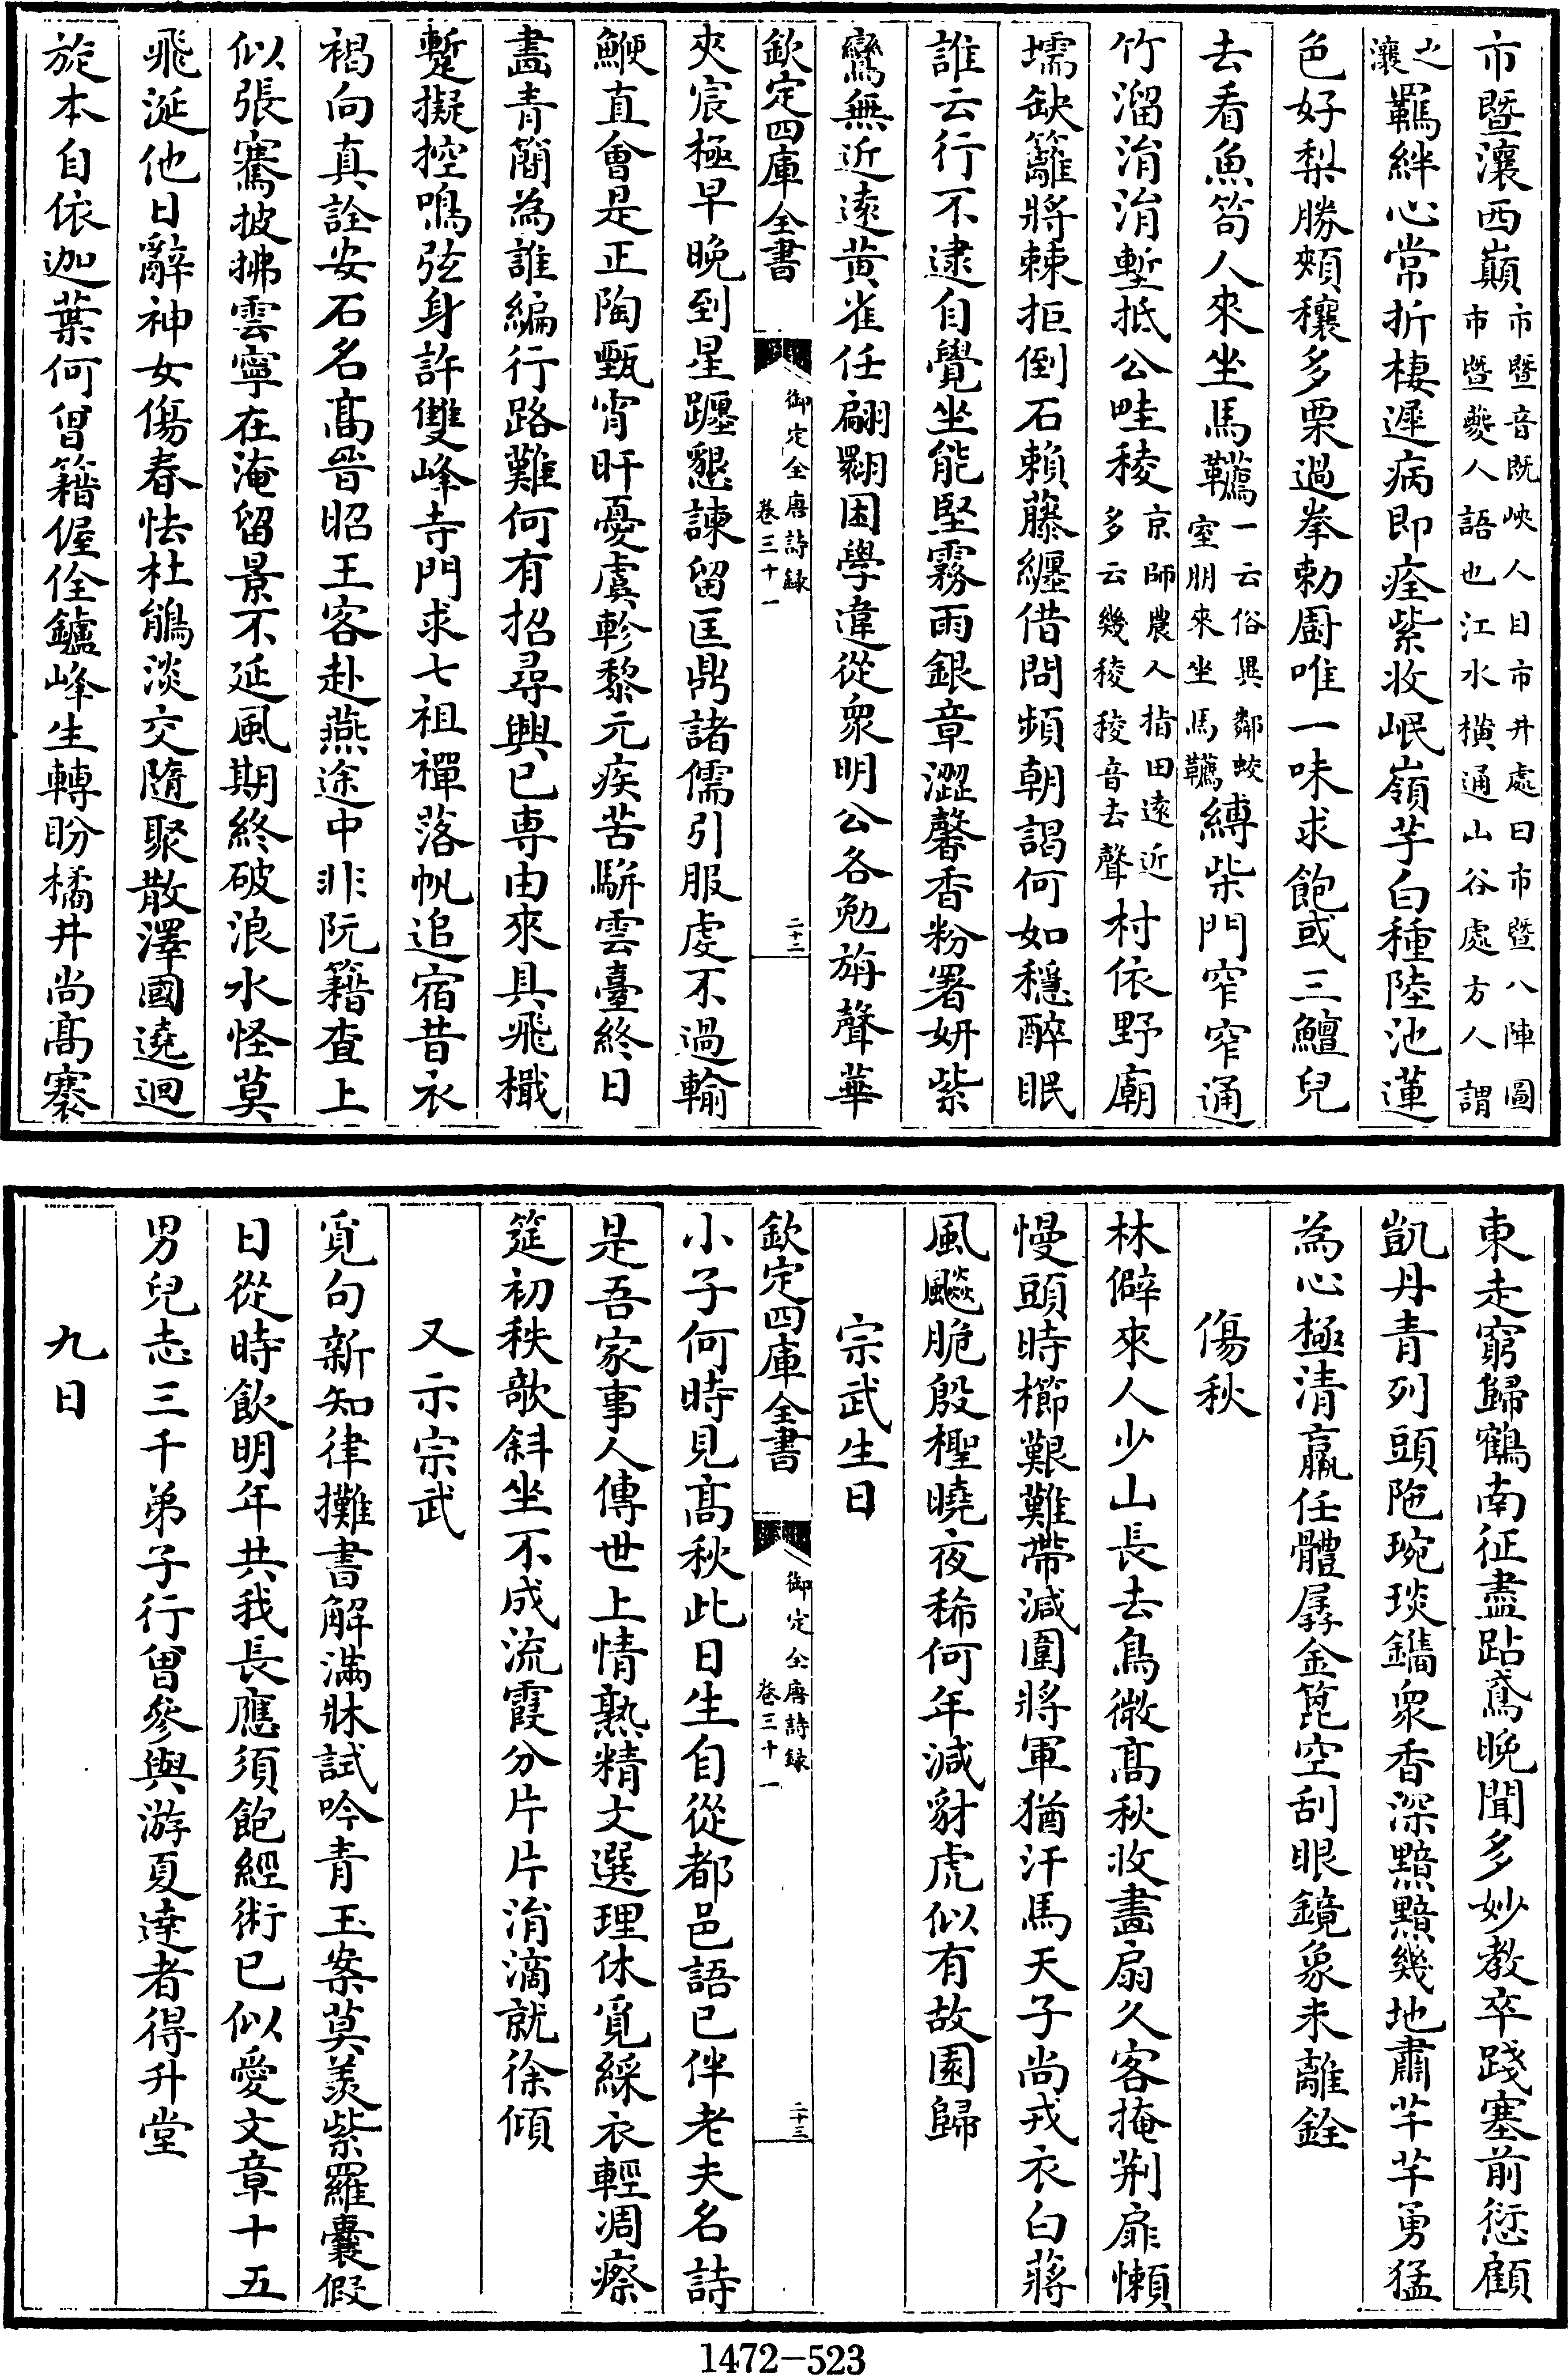 市暨瀼西巔市暨音既峽人目市井處曰市暨八陣圖市暨夔人語也江水橫通山谷處方人謂
之瀼羈絆心常折棲遲病即痊紫收岷嶺芋白種陸池蓮
色好梨勝頰穰多栗過拳勅廚唯一味求飽或三鱣兒
去看魚笱人來坐馬韉一云俗異鄰蛟室朋來坐馬韉縛柴門窄窄通
竹溜涓涓塹抵公畦稜京師農人指田遠近多云幾稜稜音去聲村依野廟
壖缺籬將棘拒倒石賴藤纏借問頻朝謁何如穩醉眠
誰云行不逮自覺坐能堅霧雨銀章澀馨香粉署妍紫
鸞無近遠黃雀任翩翾困學違從衆明公各勉旃聲華
欽定四庫全書 御定全唐詩録 卷三十一 二十二
夾宸極早晚到星躔懇諫留匡鼎諸儒引服虔不過輸
鯁直會是正陶甄宵旰憂虞軫黎元疾苦駢雲臺終日
畫青簡為誰編行路難何有招尋興已専由來具飛檝
蹔擬控鳴弦身許雙峰寺門求七祖禪落帆追宿昔衣
褐向真詮安石名髙晉昭王客赴燕途中非阮籍查上
似張騫披拂雲寧在淹留景不延風期終破浪水怪莫
飛涎他日辭神女傷春怯杜鵑淡交隨聚散澤國遶迴
旋本自依迦葉何曾籍偓佺鑪峰生轉盼橘井尚髙褰
東走窮歸鶴南征盡跕鳶晚聞多妙教卒踐塞前愆顧
凱丹青列頭陁琬琰鐫衆香深黯黯幾地肅芊芊勇猛
為心極清羸任體孱金篦空刮眼鏡象未離銓
傷秋
林僻來人少山長去鳥微髙秋收畫扇久客掩荆扉懶
慢頭時櫛艱難帶減圍將軍猶汗馬天子尚戎衣白蔣
風飈脆殷檉曉夜稀何年減豺虎似有故園歸
宗武生日
欽定四庫全書 御定全唐詩録 卷三十一 二十三
小子何時見髙秋此日生自從都邑語已伴老夫名詩
是吾家事人傳世上情熟精文選理休覓綵衣輕凋瘵
筵初秩欹斜坐不成流霞分片片涓滴就徐傾
又示宗武
覓句新知律攤書解滿牀試吟青玉案莫羡紫羅囊假
日從時飲明年共我長應須飽經術已似愛文章十五
男兒志三千弟子行曾參與游夏達者得升堂
九日
1472-523